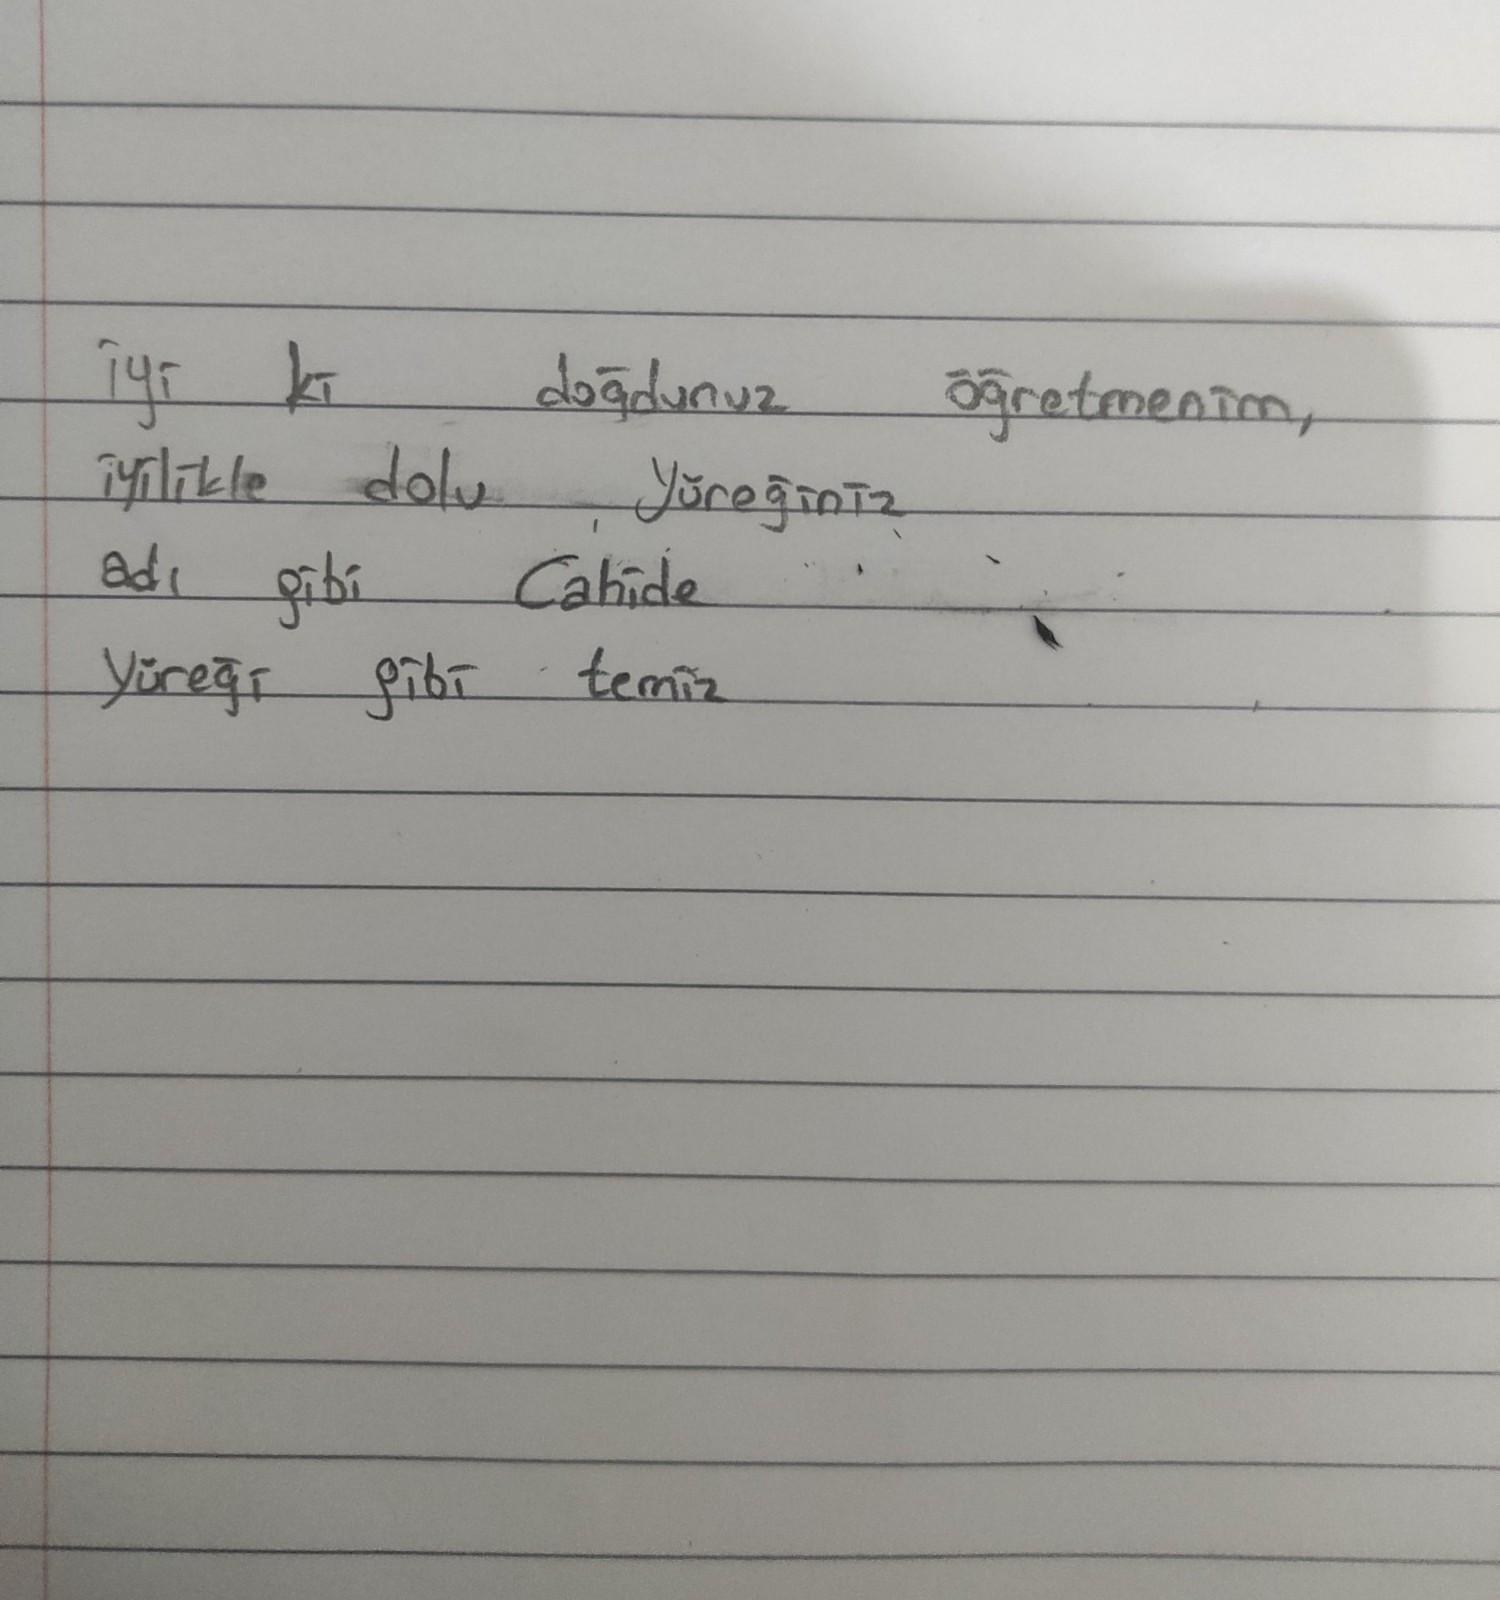 iyi ki doğdunuz öğretmenim,
iyilikle dolu yüreğiniz
adı gibi Cahide
yüreği gibi temiz